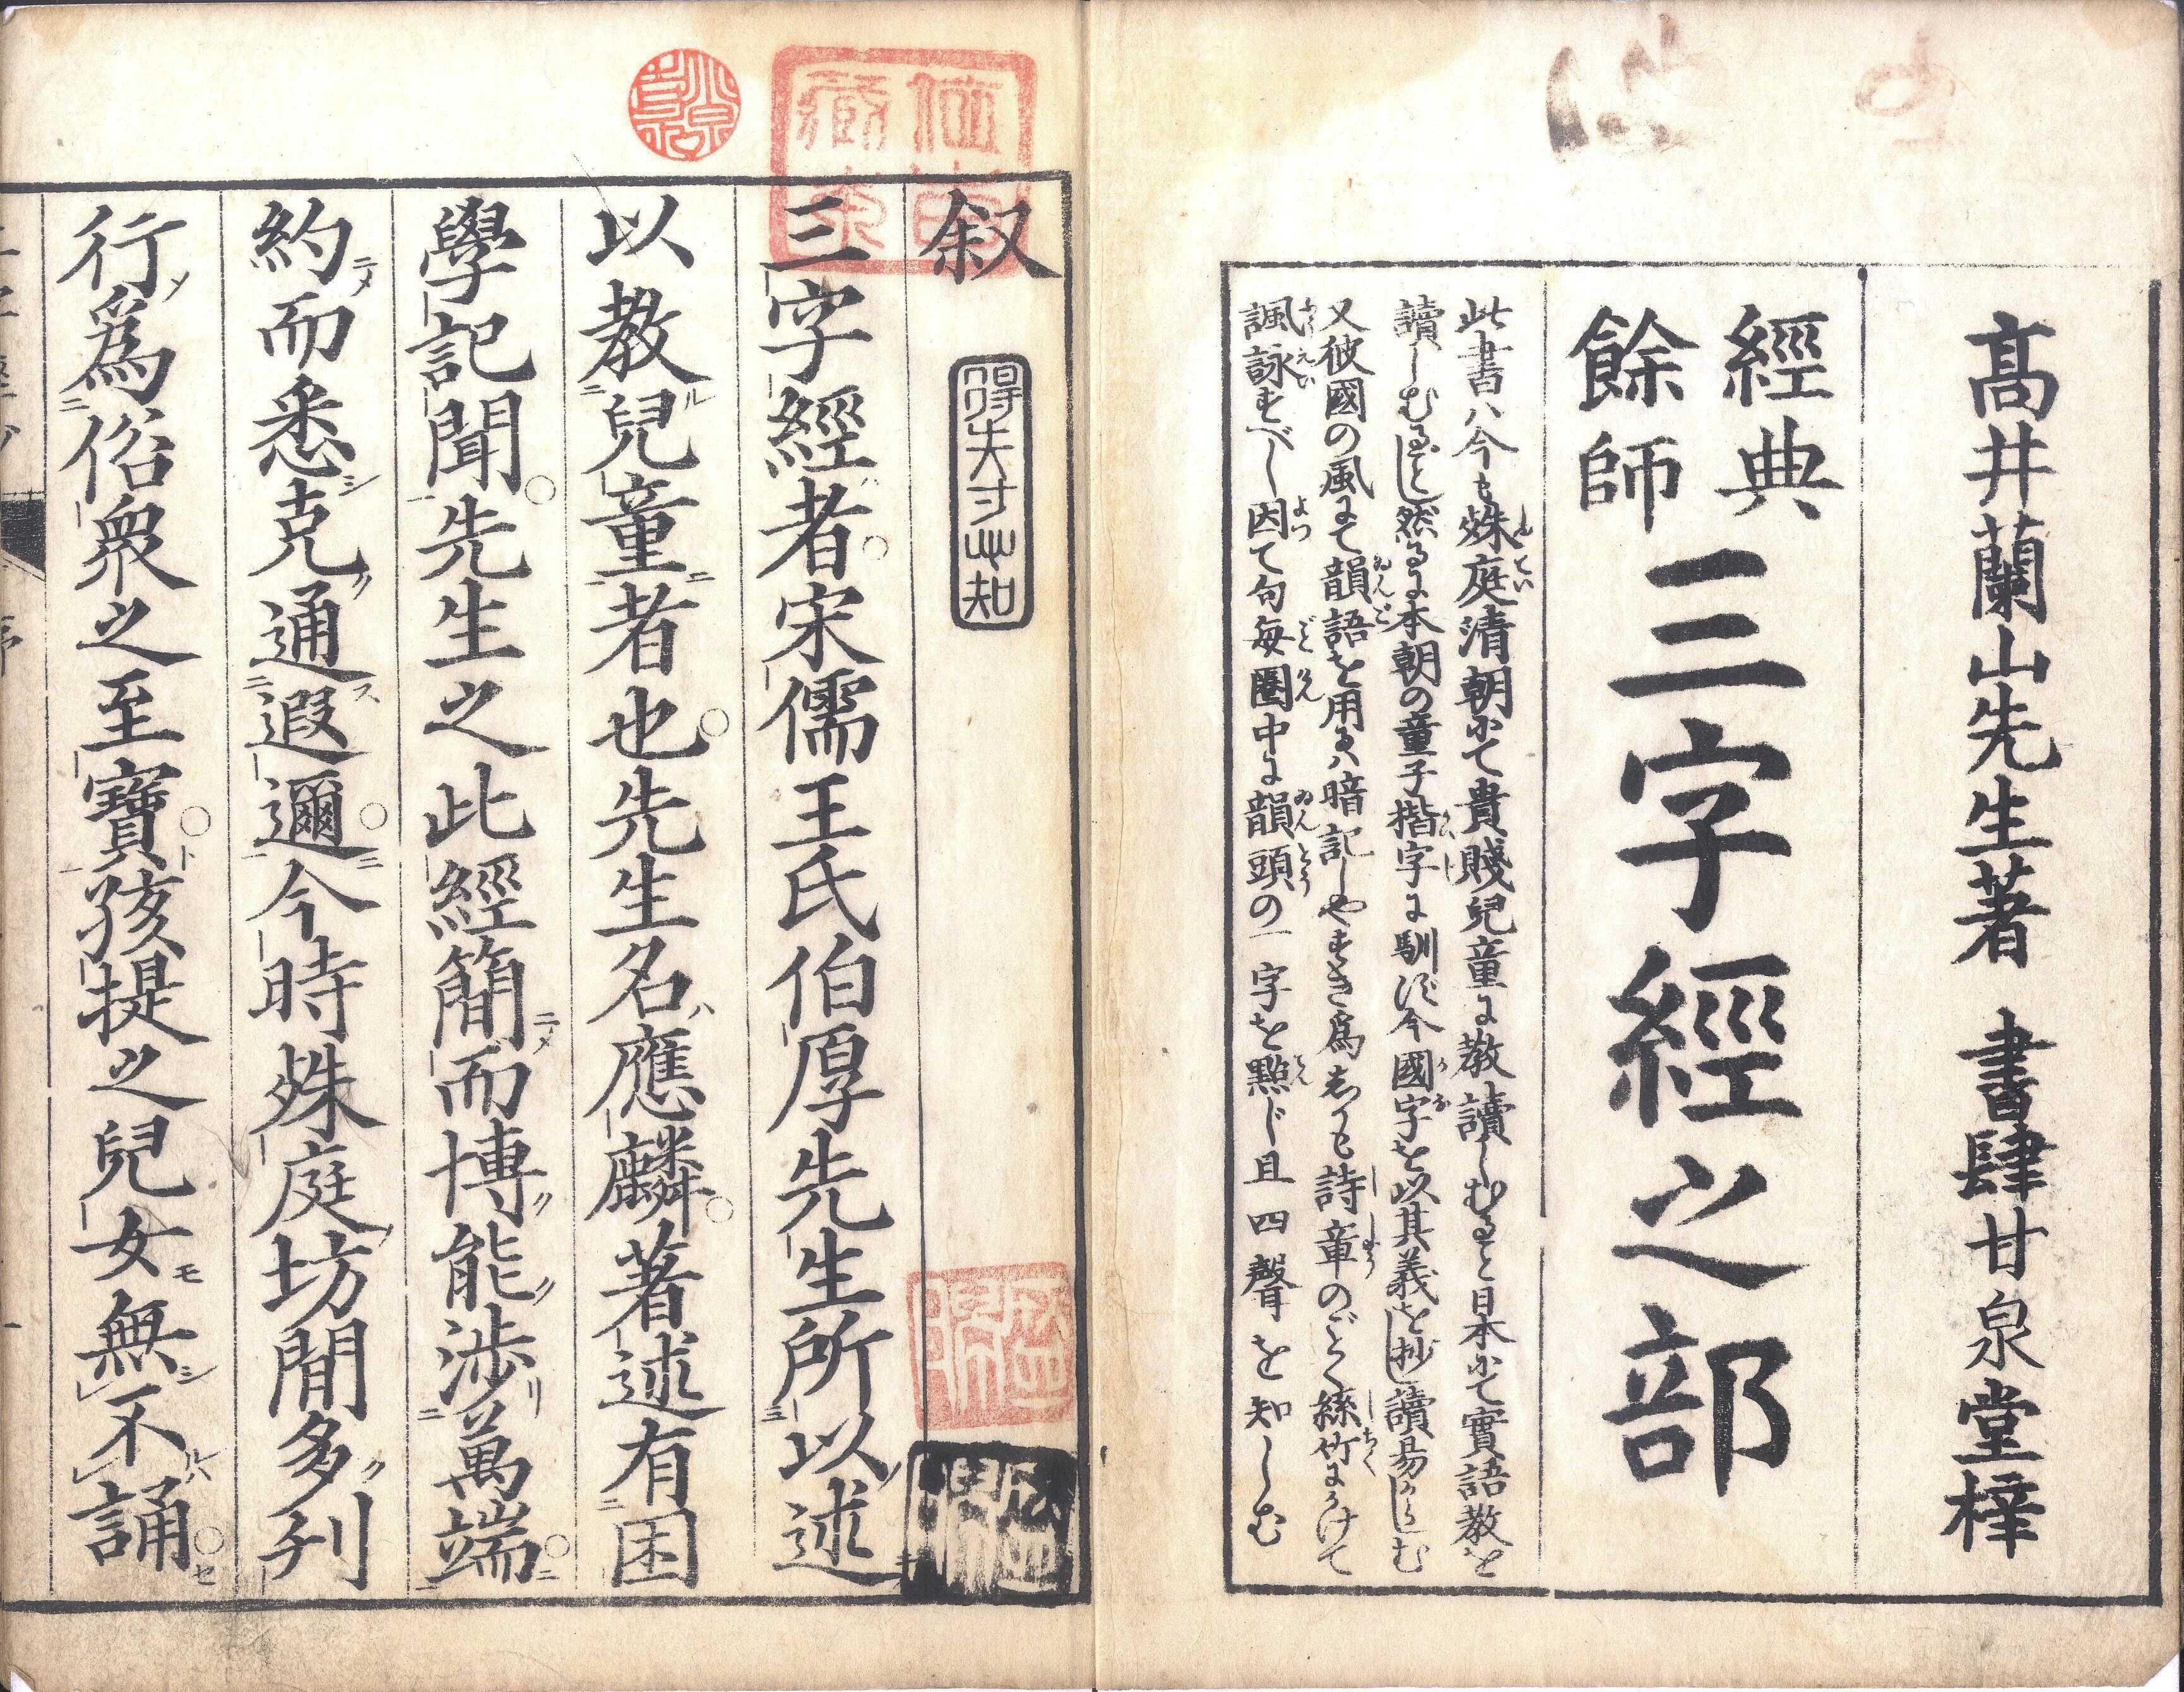 高井蘭山先生著 書肆甘泉堂梓
經典餘師 三字經之部
此書ハ今も殊庭清朝にて貴賤兒童に教讀しむること日本にて實語教を
讀しむるがごとし然るに本朝の童子楷字に馴ず今國字を以其義を抄し讀易からしむ
又彼國の風にて韻語を用るハ暗記しやすき爲あかも詩章のごとく絲竹にかけて
諷詠すべし因て句毎圏中に韻頭の一字を點じ且四聲を知しむ
叙
三字經者宋儒王氏伯厚先生所以述
以教兒童者也先生名應麟著述有困
學記聞先生之此經簡而博能渉萬端
約而悉克通遐邇今時殊庭坊間多刊
行爲俗衆之至寶孩提之兒女無不誦